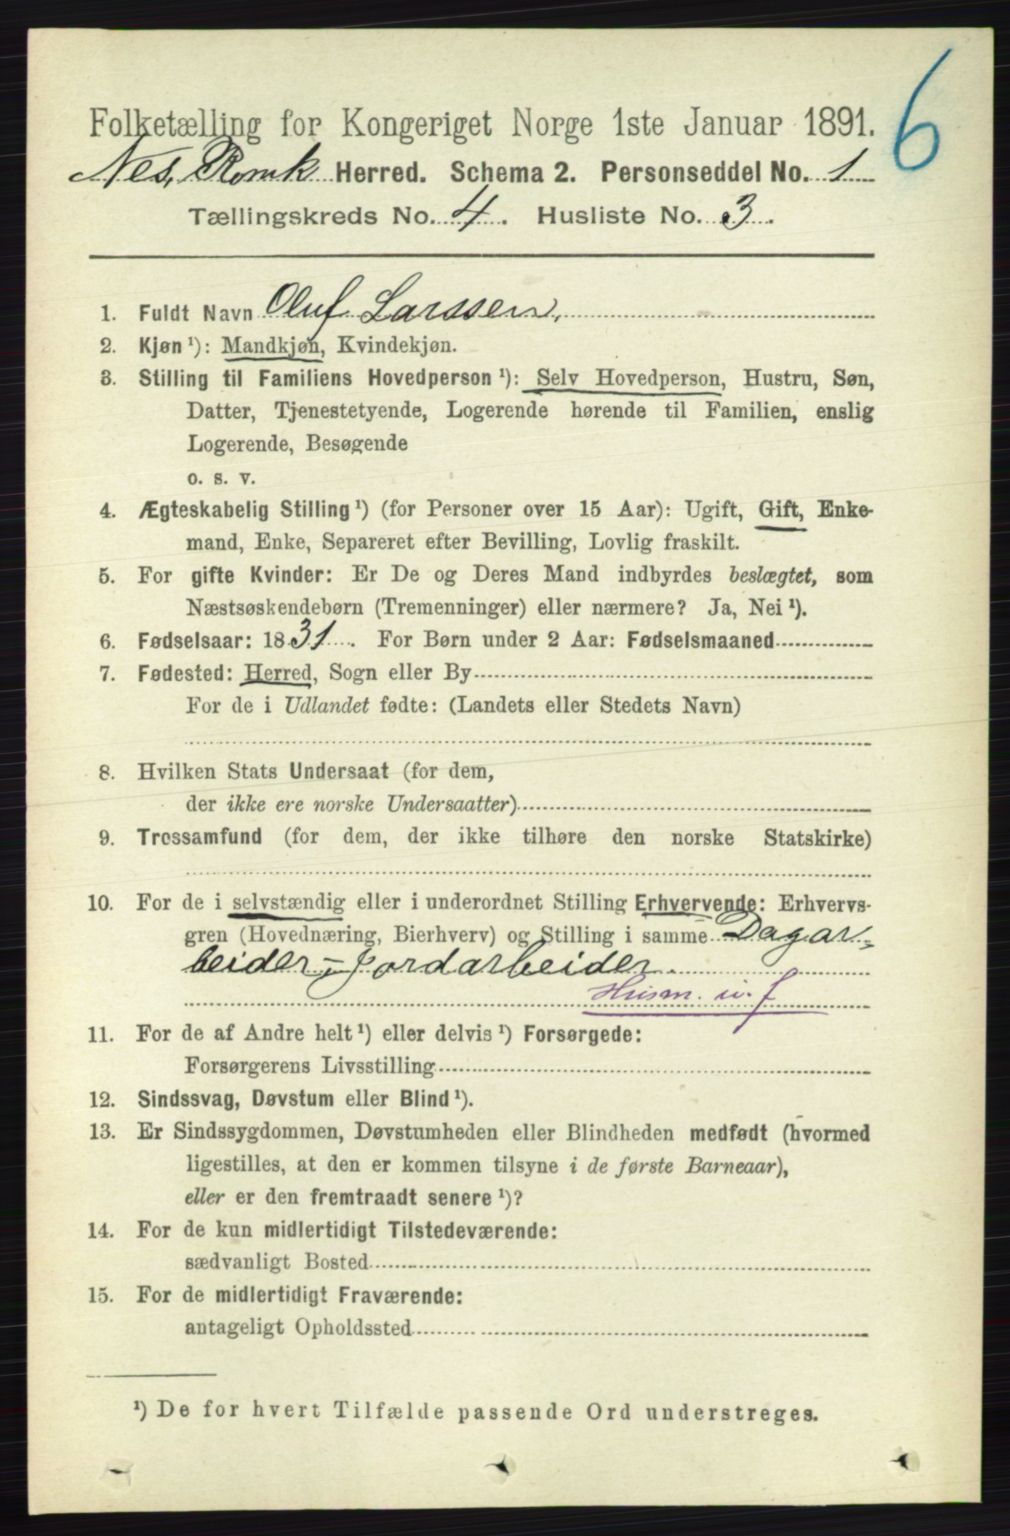 6
Folketælling for Kongeriget Norge 1ste Januar 1891.
Nes, Romk Herred. Schema 2. Personseddel No. 1
Tællingskreds No. 4. Husliste No. 3.
1. Fuldt Navn Oluf Larssen,
2. Kjøn ¹): Mandkjøn, Kvindekjøn.
3. Stilling til Familiens Hovedperson ¹): Selv Hovedperson, Hustru, Søn,
Datter, Tjenestetyende, Logerende hørende til Familien, enslig
Logerende, Besøgende
o. s. v.
4. Ægteskabelig Stilling ¹) (for Personer over 15 Aar): Ugift, Gift, Enke-
mand, Enke, Separeret efter Bevilling, Lovlig fraskilt.
5. For gifte Kvinder: Er De og Deres Mand indbyrdes beslægtet, som
Næstsøskendebørn (Tremenninger) eller nærmere? Ja, Nei ¹).
6. Fødselsaar: 1831. For Børn under 2 Aar: Fødselsmaaned
7. Fødested: Herred, Sogn eller By
For de i Udlandet fødte: (Landets eller Stedets Navn)
8. Hvilken Stats Undersaat (for dem,
der ikke ere norske Undersaatter)
9. Trossamfund (for dem, der ikke tilhøre den norske Statskirke)
10. For de i selvstændig eller i underordnet Stilling Erhvervende: Erhvervs-
gren (Hovednæring, Bierhverv) og Stilling i samme Dagar-
beider-, Jordarbeider.
Husm. u. J
11. For de af Andre helt ¹) eller delvis ¹) Forsørgede:
Forsørgerens Livsstilling
12. Sindssvag, Døvstum eller Blind ¹).
13. Er Sindssygdommen, Døvstumheden eller Blindheden medfødt (hvormed
ligestilles, at den er kommen tilsyne i de første Barneaar),
eller er den fremtraadt senere ¹)?
14. For de kun midlertidigt Tilstedeværende:
sædvanligt Bosted
15. For de midlertidigt Fraværende:
antageligt Opholdssted
¹) De for hvert Tilfælde passende Ord understreges.